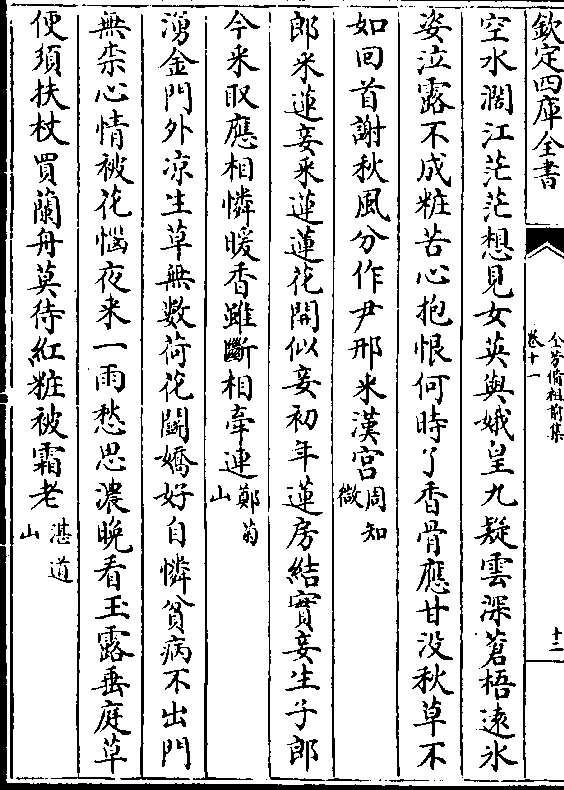 欽定四庫全書
全芳備祖前集
卷十一
十三
空水濶江茫茫想見女英與娥皇九疑雲深蒼梧遠氷
姿泣露不成粧苦心抱恨何時了香骨應甘没秋草不
如回首謝秋風分作尹邢米漢宮周知微
郎采蓮妾采蓮蓮花開似妾初年蓮房結實妾生子郎
今采取應相憐暖香雖斷相牽連鄭菊山
湧金門外凉生草無數荷花鬭嬌好自憐貧病不出門
無柰心情被花惱夜来一雨愁思濃晚看玉露垂庭草
便須扶杖買蘭舟莫待紅粧被霜老湛道山